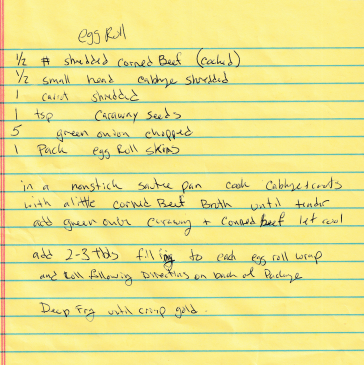 egg Roll
1/2 # shredded corned Beef (cooked)
1/2 small head cabbge shredded
1 carrot shredded
1 tsp Caraway seeds
5 green onion chopped
1 Pack egg Roll skins
in a nonstick sautee pan cook cabbge +carrots
with a little corned Beef Broth until tender
add green onion caraway + corned beef let cool
add 2-3 tbls filling to each egg roll wrap
and Roll following Directions on back of Package
Deep Fry until crisp gold.